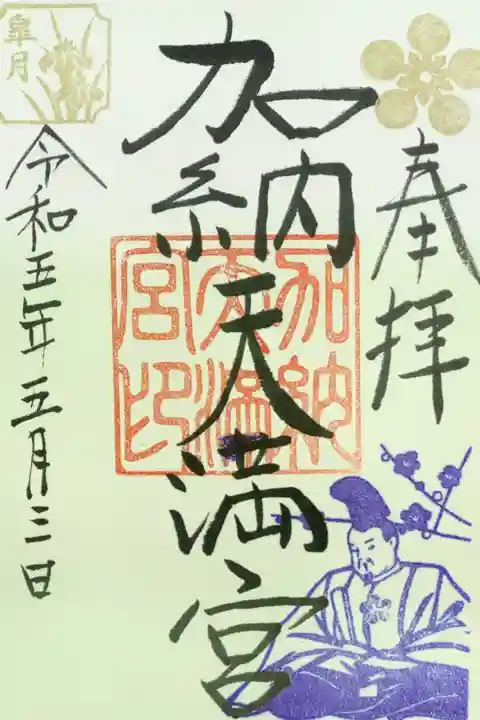 奉拝
加納天満宮
加納
天満
宮印
令和五年五月三日
皐月